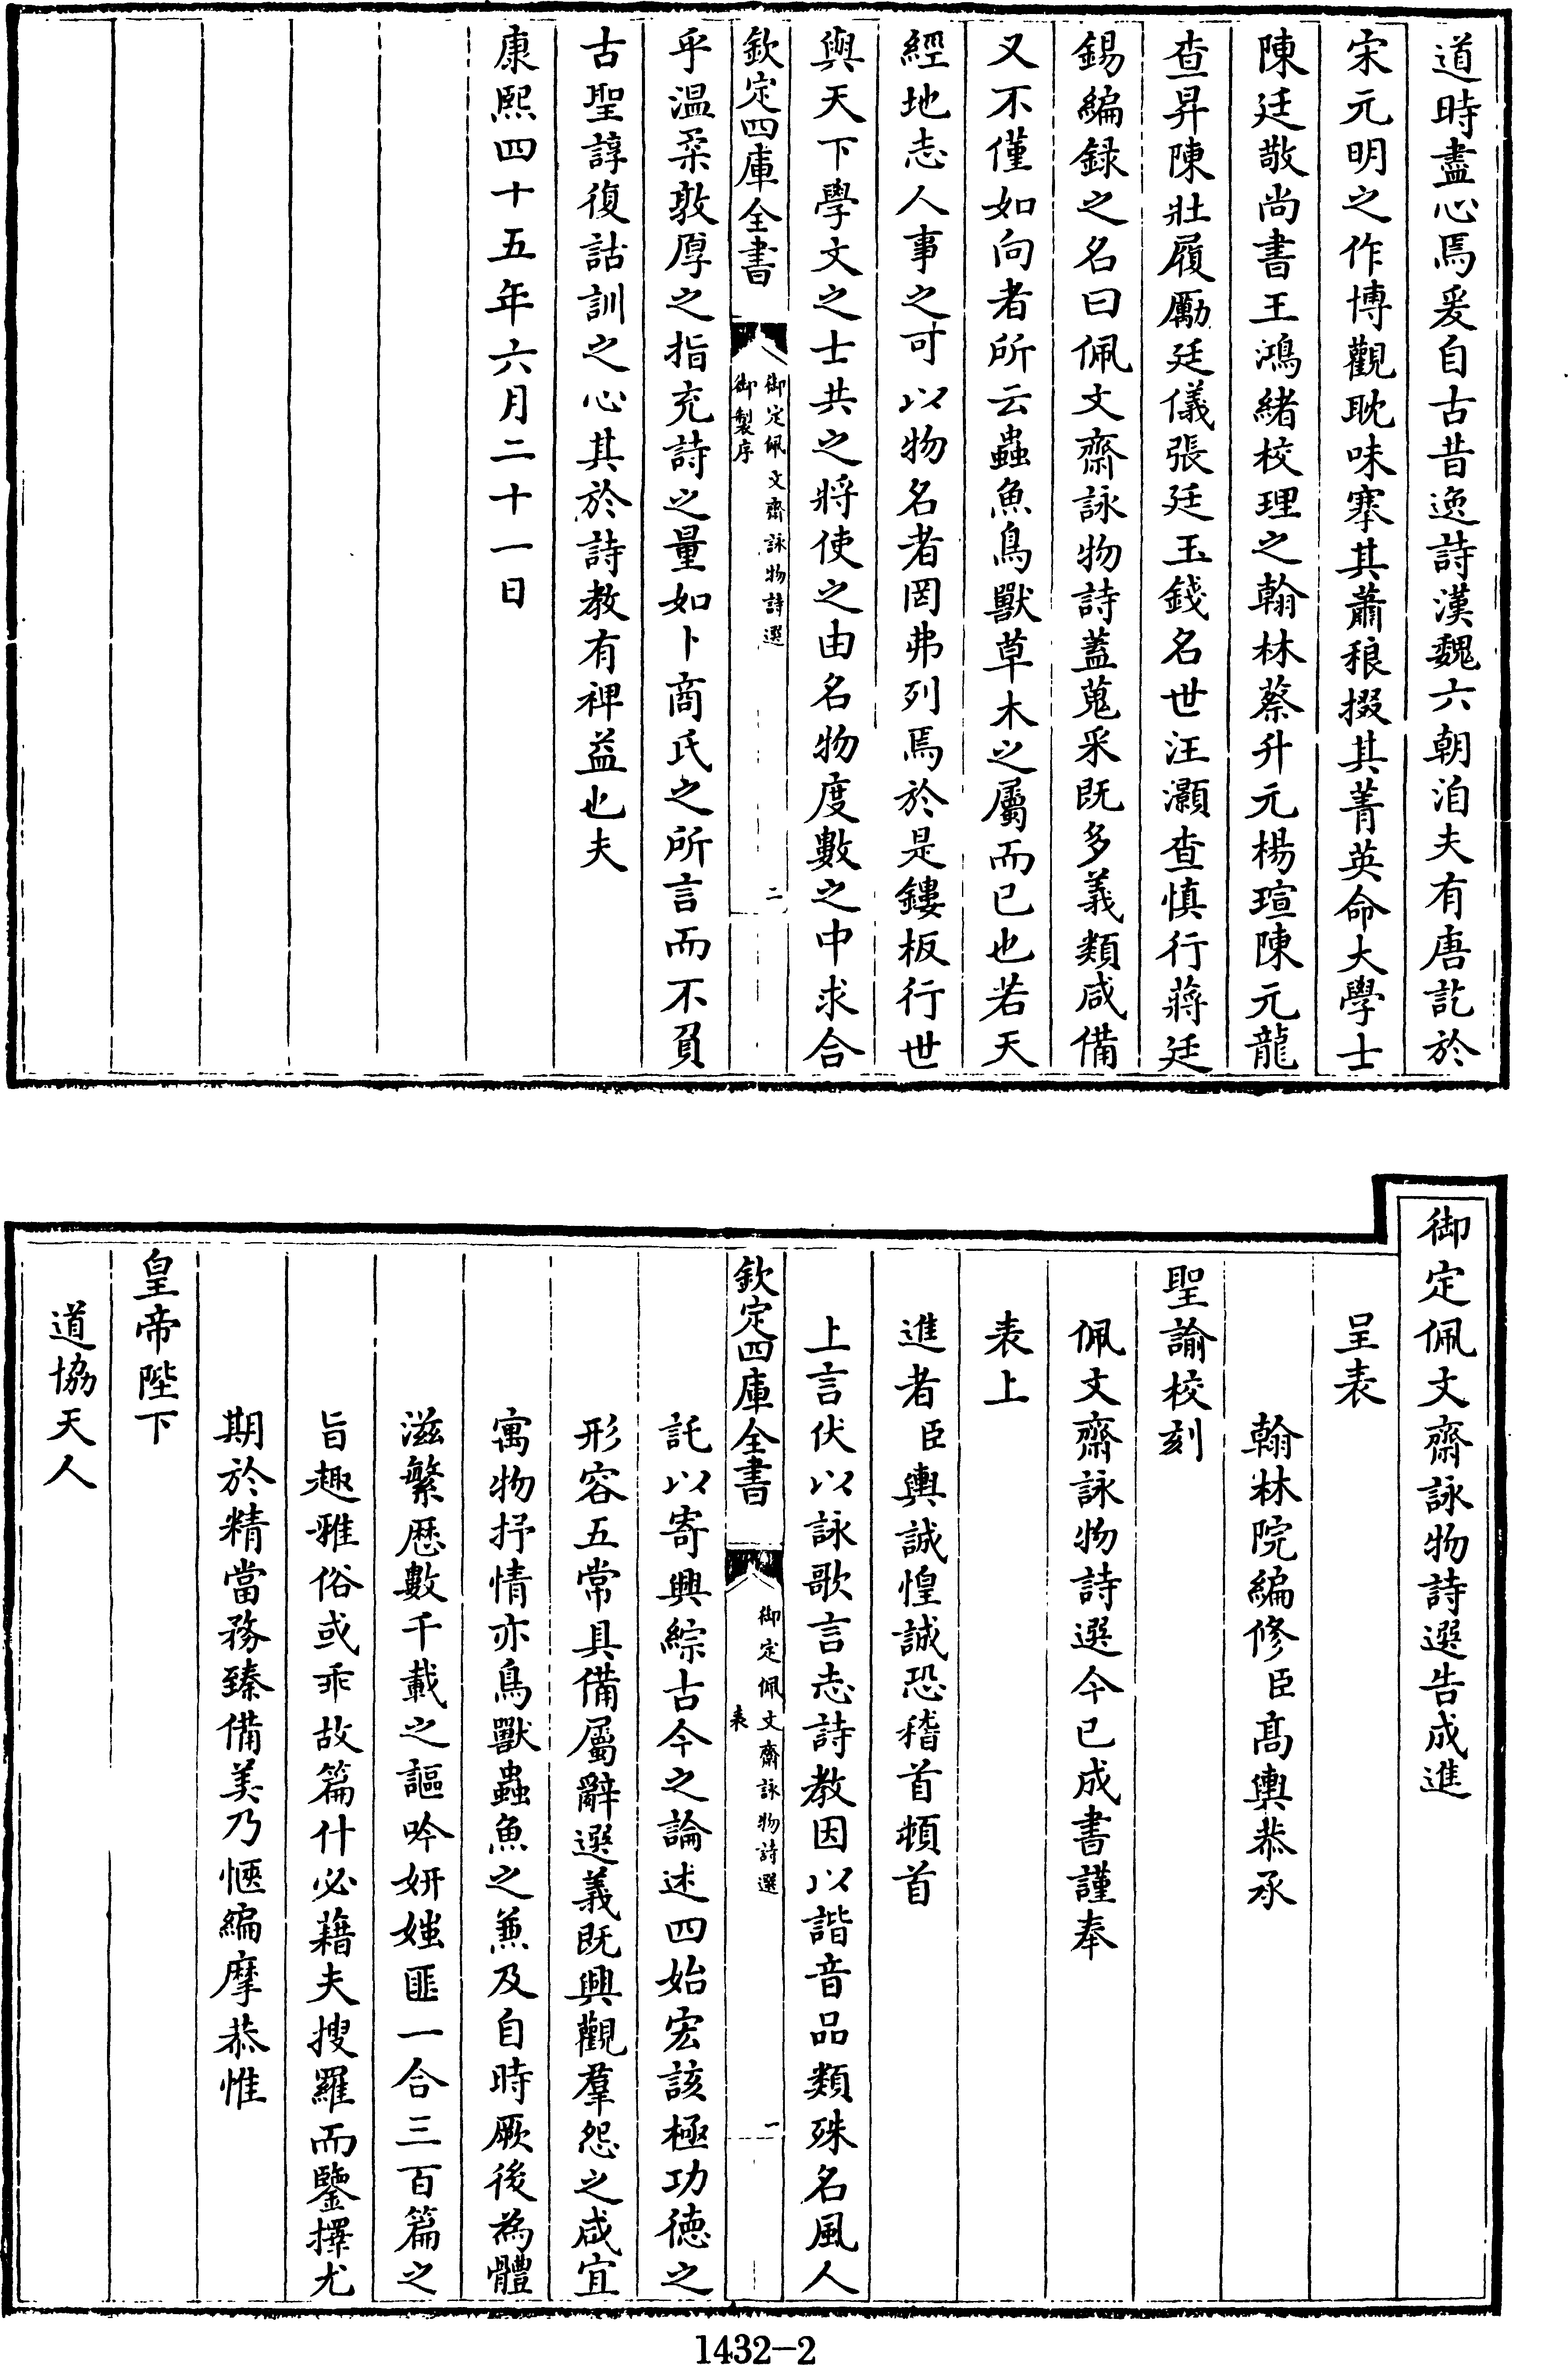 道時盡心焉爰自古昔逸詩漢魏六朝洎夫有唐訖於
宋元明之作博觀耽味搴其蕭稂掇其菁英命大學士
陳廷敬尚書王鴻緒校理之翰林蔡升元楊瑄陳元龍
查昇陳壯履勵廷儀張廷玉錢名世汪灝查慎行蔣廷
錫編録之名曰佩文齋詠物詩蓋蒐采既多義類咸備
又不僅如向者所云蟲魚鳥獸草木之屬而已也若天
經地志人事之可以物名者罔弗列焉於是鏤板行世
與天下學文之士共之將使之由名物度數之中求合
欽定四庫全書
御定佩文齋詠物詩選
御製序
二
乎温柔敦厚之指充詩之量如卜商氏之所言而不負
古聖諄復詁訓之心其於詩教有裨益也夫
康熙四十五年六月二十一日
御定佩文齋詠物詩選告成進
呈表
翰林院編修臣高輿恭承
聖諭校刻
佩文齋詠物詩選今已成書謹奉
表上
進者臣輿誠惶誠恐稽首頓首
上言伏以詠歌言志詩教因以諧音品類殊名風人
欽定四庫全書
御定佩文齋詠物詩選
表
一
託以寄興綜古今之論述四始宏該極功德之
形容五常具備屬辭選義既興觀羣怨之咸宜
寓物抒情亦鳥獸蟲魚之兼及自時厥後為體
滋繁歴數千載之謳吟妍媸匪一合三百篇之
旨趣雅俗或乖故篇什必藉夫搜羅而鑒擇尤
期於精當務臻備美乃愜編摩恭惟
皇帝陛下
道協天人
1432-2